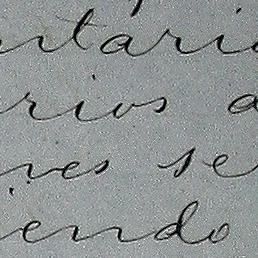 ntari
rios a
nes se
iendo